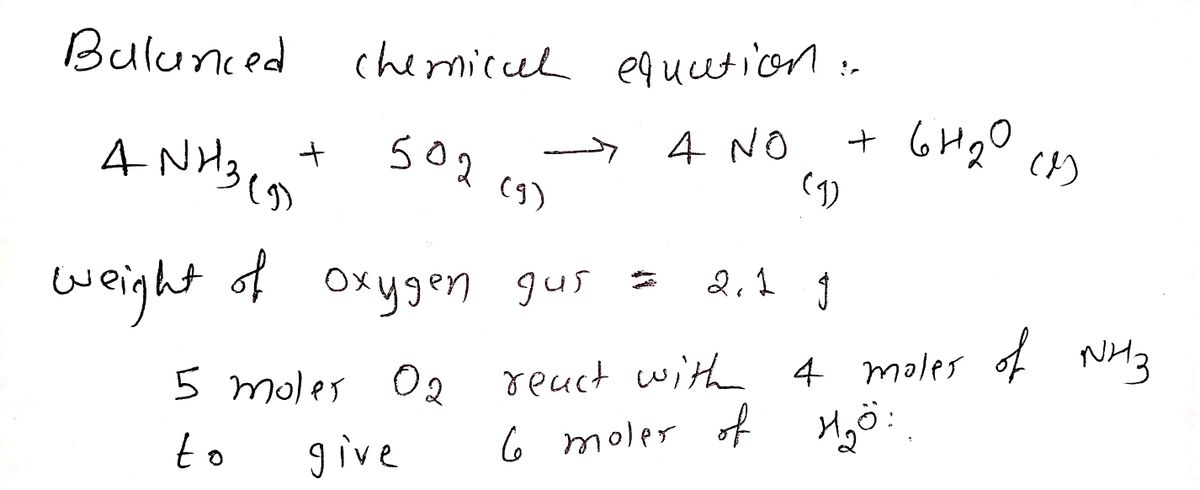 Balanced chemical equation :-
4 NH₃(g) + 5O₂(g) → 4 NO(g) + 6H₂O(l)
weight of oxygen gas = 2.1 g
5 moles O₂ react with 4 moles of NH₃
to give 6 moles of H₂Ö: